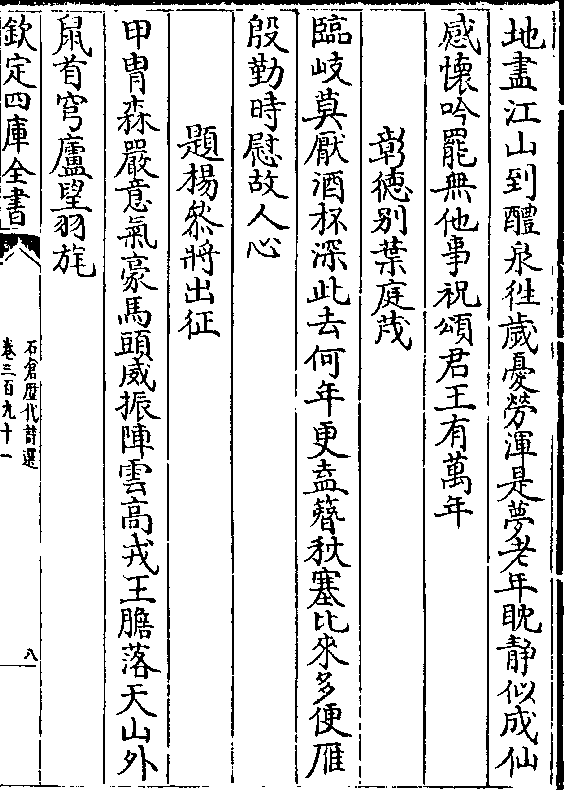 地盡江山到醴泉徃歲憂勞渾是夢老年眈靜似成仙
感懐吟罷無他事祝頌君王有萬年
彰徳别葉庭茂
臨岐莫厭酒杯深此去何年更盍簪秋塞比來多便雁
殷勤時慰故人心
題楊叅將出征
甲胄森嚴意氣豪馬頭威振陣雲高戎王膽落天山外
鼠首穹廬望羽旄
欽定四庫全書
石倉歴代詩選
卷三百九十一
八